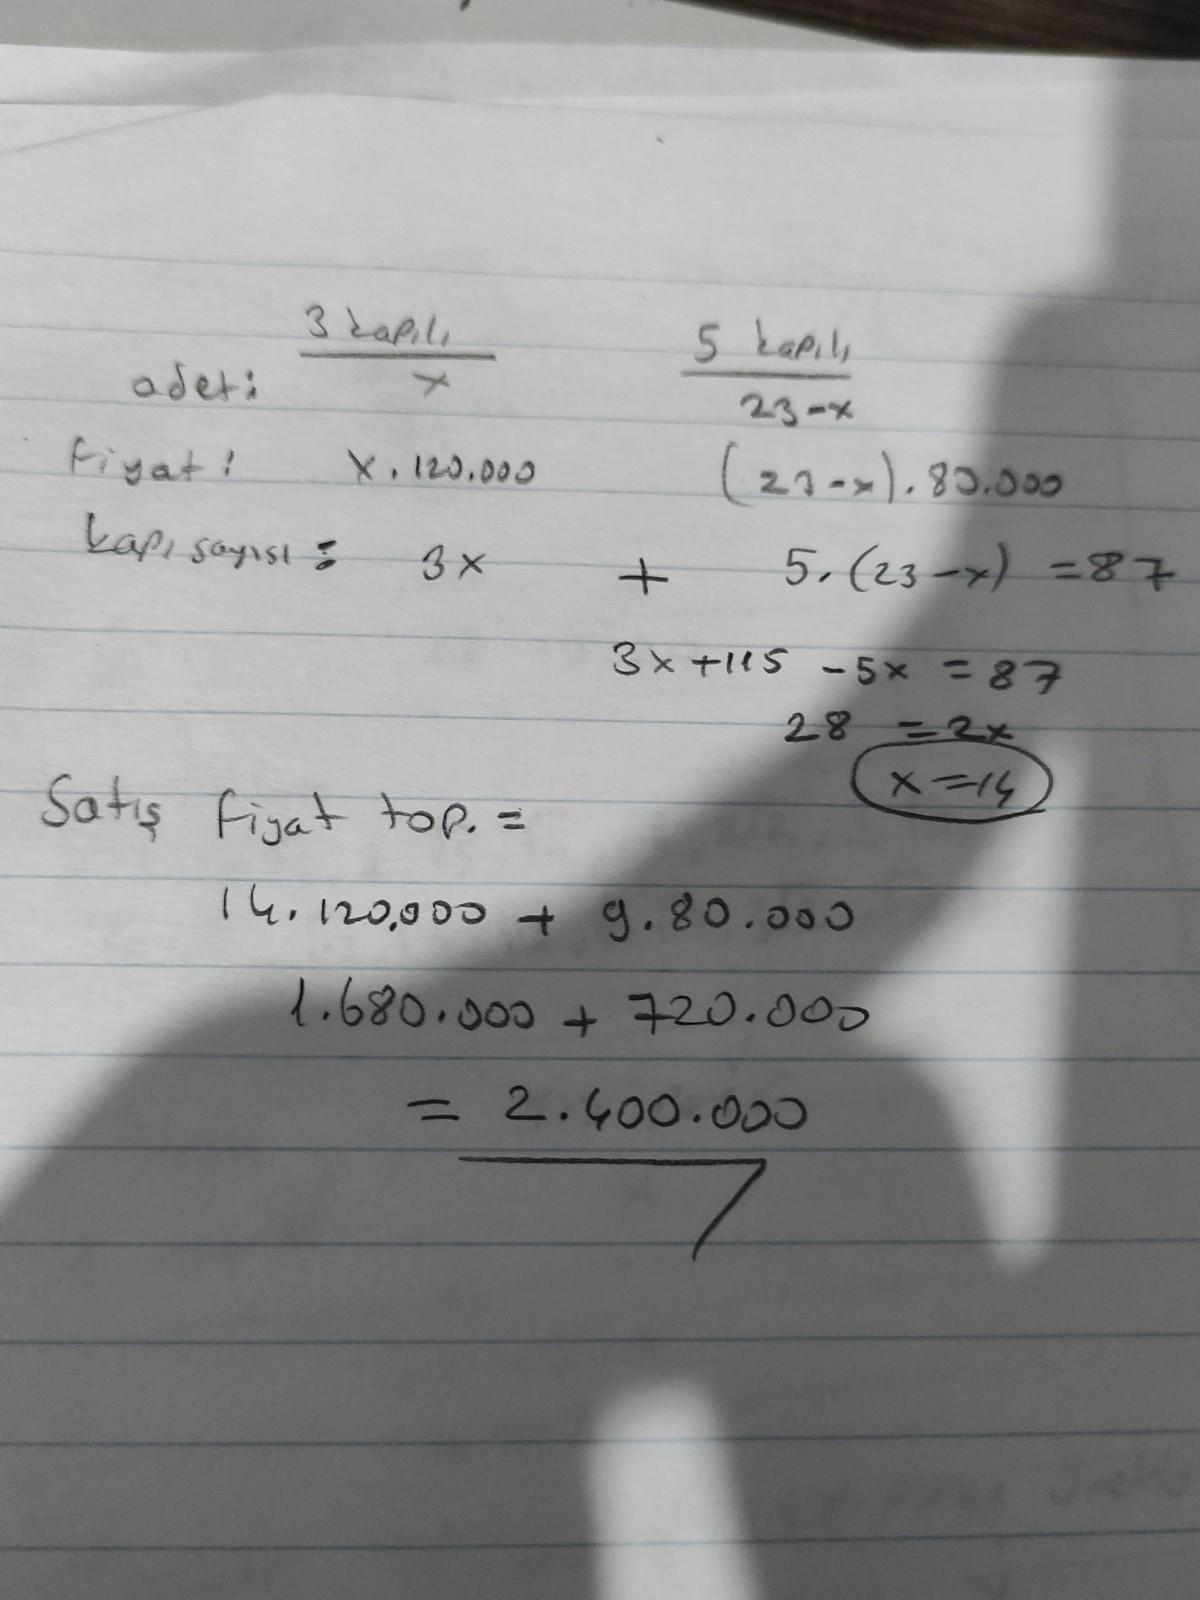 3 kapılı 5 kapılı
adet: x 23-x
fiyat: x.120.000 (23-x).80.000
kapı sayısı: 3x + 5.(23-x) = 87
3x+115 -5x = 87
28 = 2x
x=14
Satış fiyat top. =
14.120.000 + 9.80.000
1.680.000 + 720.000
= 2.400.000